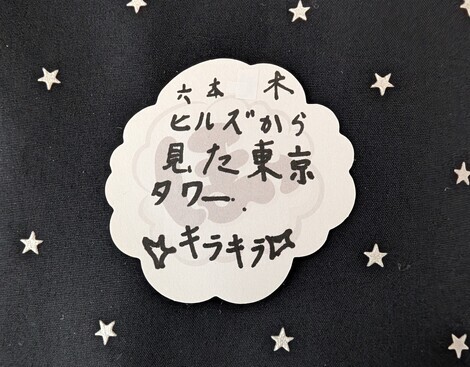 六本 木
ヒルズから
見た東京
タワー..
☆キラキラ☆